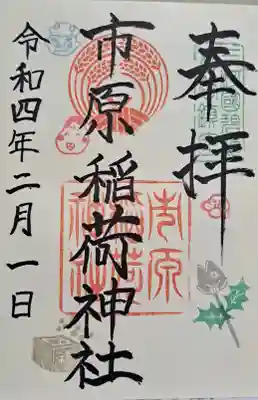 奉拝
市原稲荷神社
令和四年二月一日